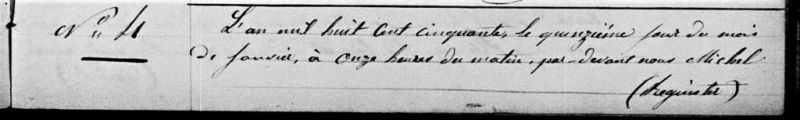 No 4 L'an mil huit cent cinquante, le quinzième jour du mois
de Janvier, à onze heures du matin, par-devant nous Michel
(Reginster)